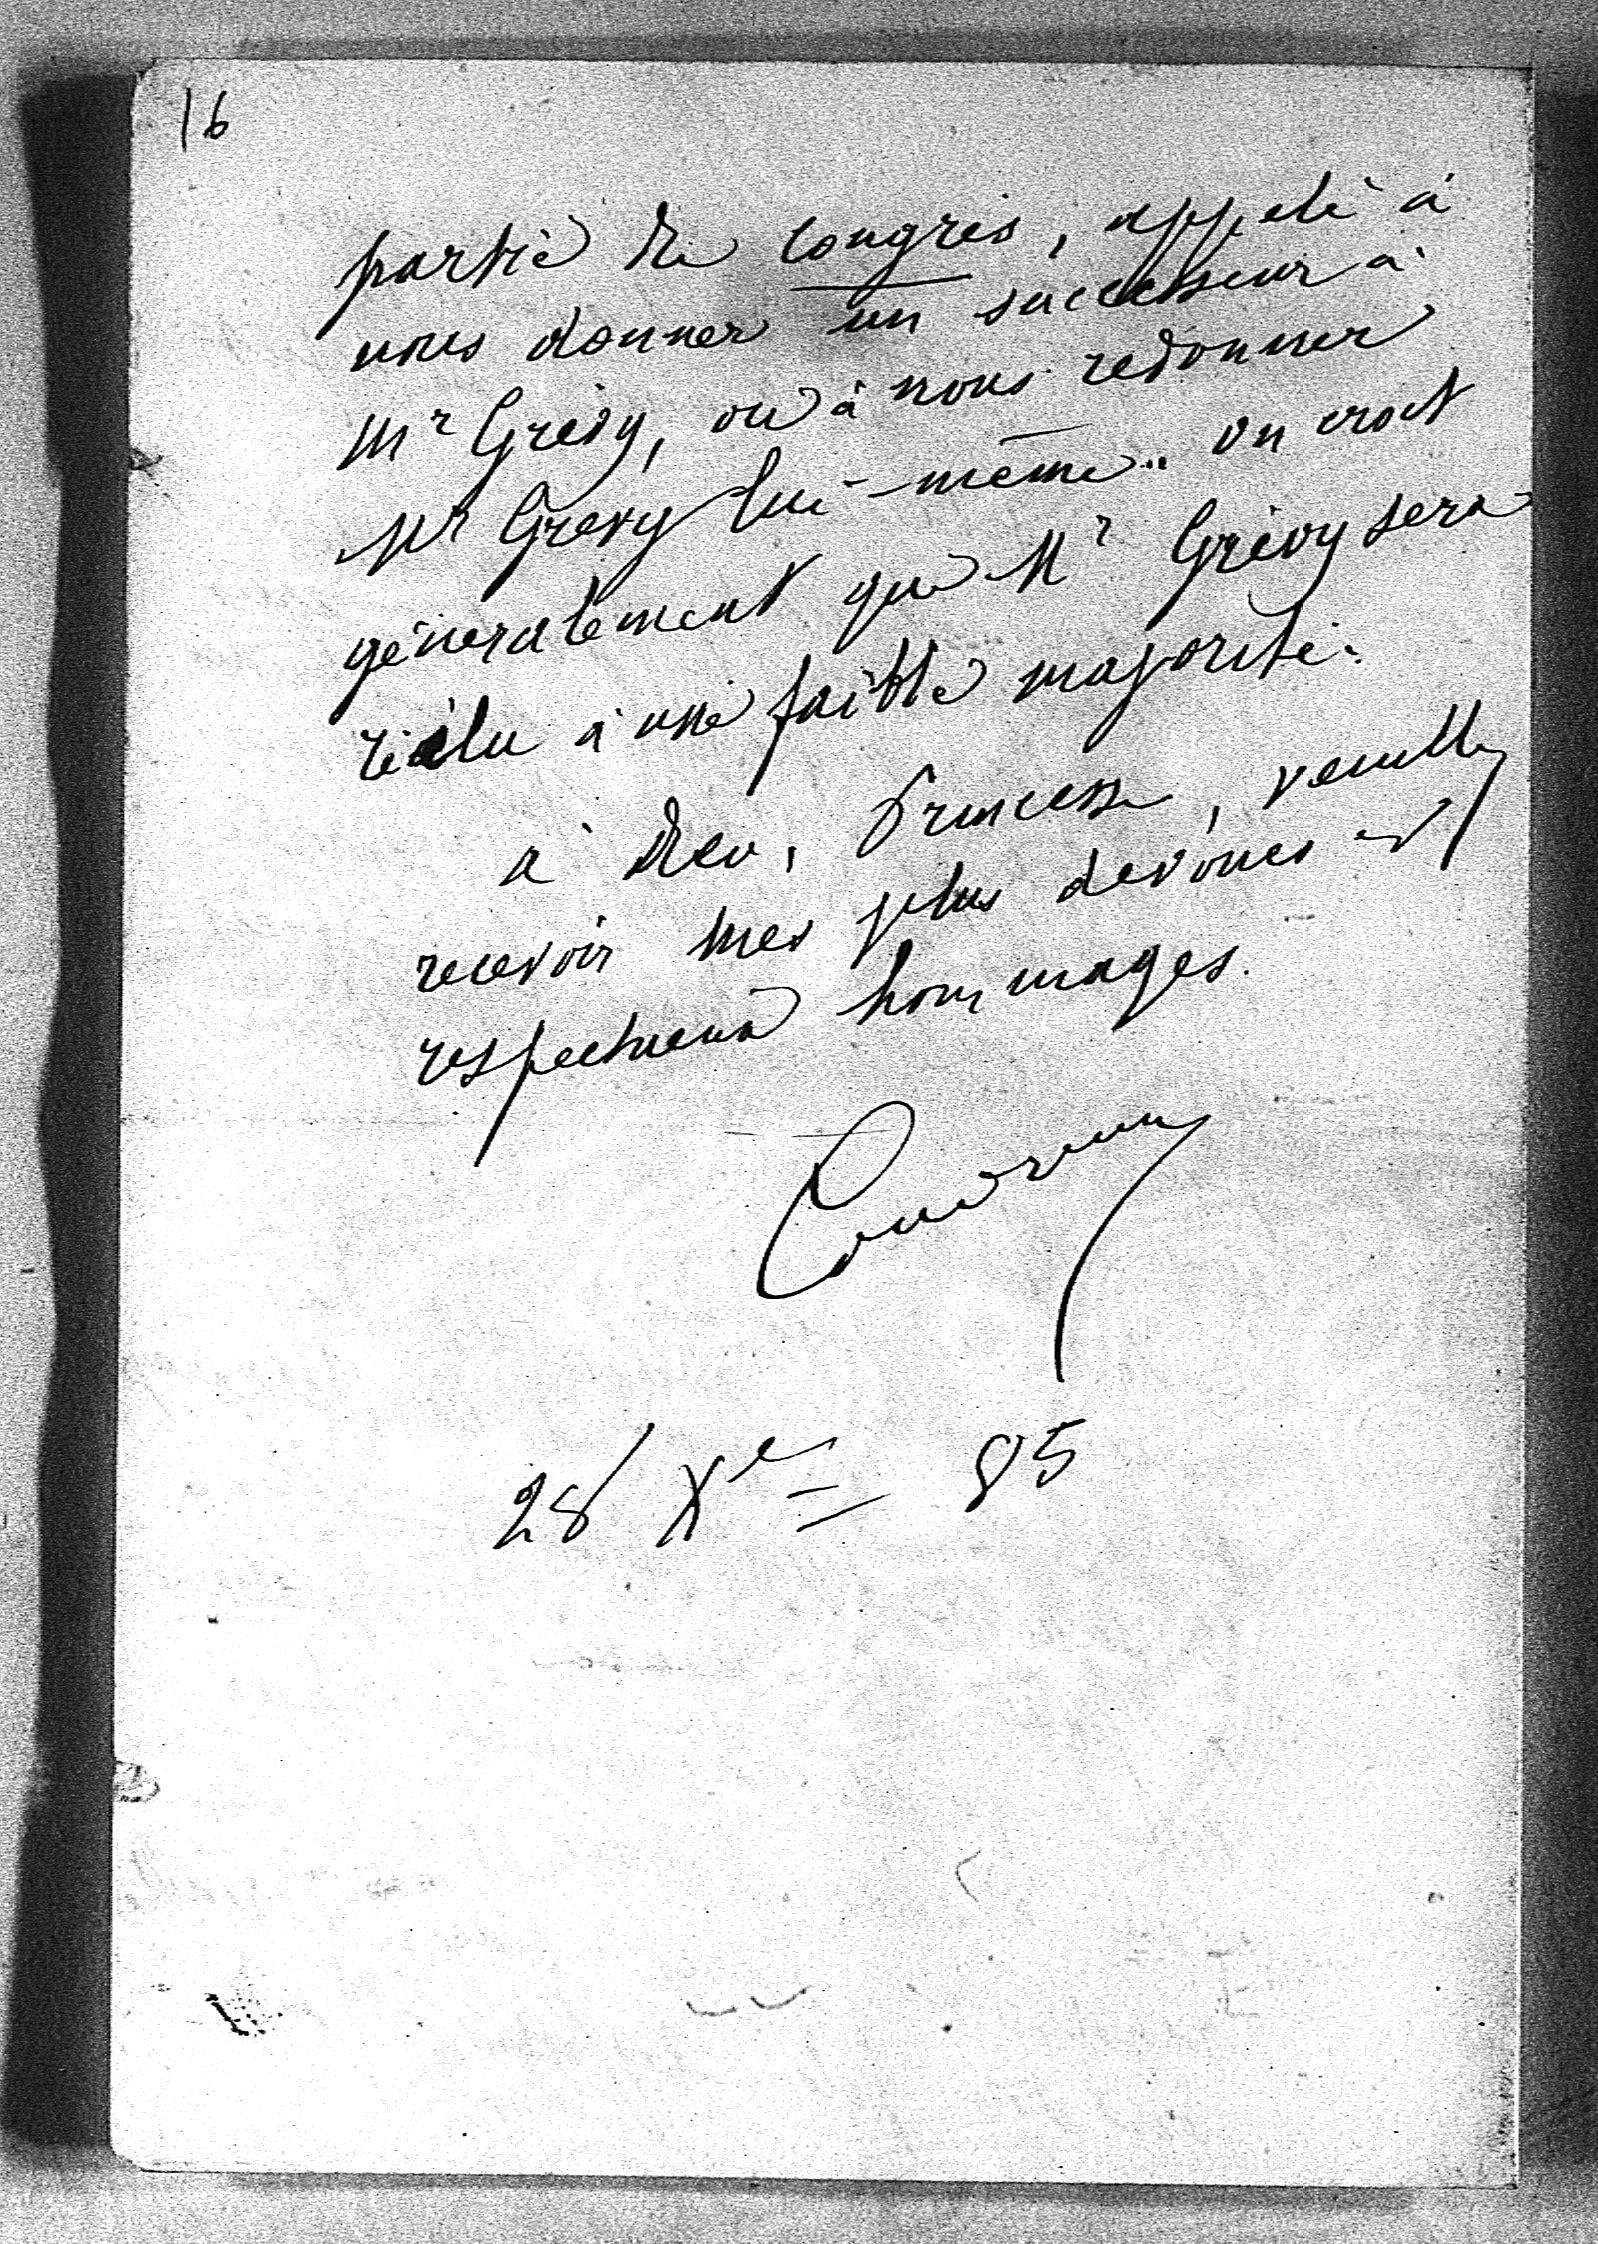 16
partie du Congrès, appelé à
nous donner un successeur à
Mr Grévy, ou à nous redonner
Mr Grévy lui-même. On croit
généralement que Mr Grévy sera
réélu à une faible majorité.
à Dieu, Princesse, veuillez
recevoir mes plus dévoués et
respectueux hommages.
28 Xe 85